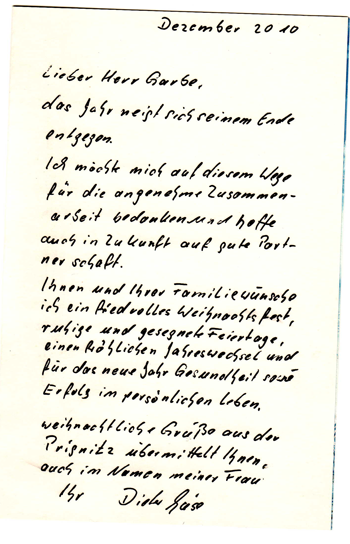 Dezember 2010
Lieber Herr Garbe,
das Jahr neigt sich seinem Ende
entgegen.
Ich möchte mich auf diesem Wege
für die angenehme Zusammen-
arbeit bedanken und hoffe
auch in Zukunft auf gute Part-
nerschaft.
Ihnen und Ihrer Familie wünsche
ich ein friedvolles Weihnachtsfest,
ruhige und gesegnete Feiertage,
einen fröhlichen Jahreswechsel und
für das neue Jahr Gesundheit sowie
Erfolg im persönlichen Leben.
weihnachtliche Grüße aus der
Prignitz übermittelt Ihnen,
auch im Namen meiner Frau
Ihr Dieter